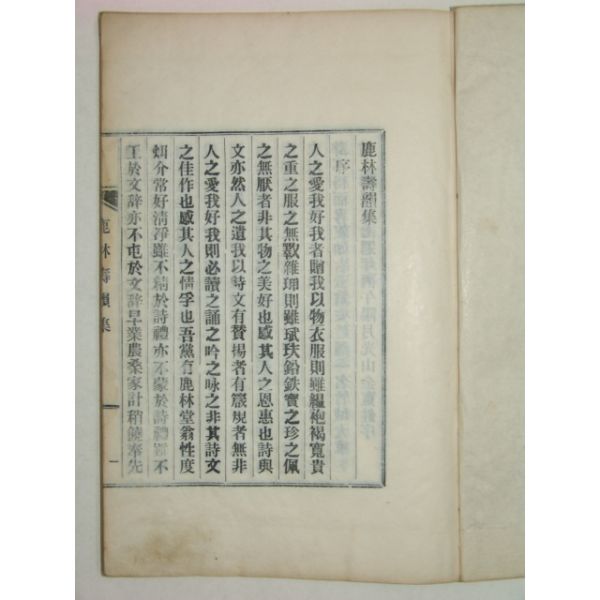 鹿林壽韻集
序
人之愛我好我者贈我以物衣服則雖縕袍褐寬貴
之重之服之無斁雜珮則雖珷玞鉛鉄寶之珍之佩
之無厭者非其物之美好也感其人之恩惠也詩與
文亦然人之遺我以詩文有贊揚者有箴規者無非
人之愛我好我則必讀之誦之吟之咏之非其詩文
之佳作也感其人之情孚也吾黨有鹿林堂翁性度
介常好清淨雖不精於詩禮亦不蒙於詩禮不
工於文辭亦不屯於文辭早業農桑家計稍饒奉先
鹿林壽韻集
一